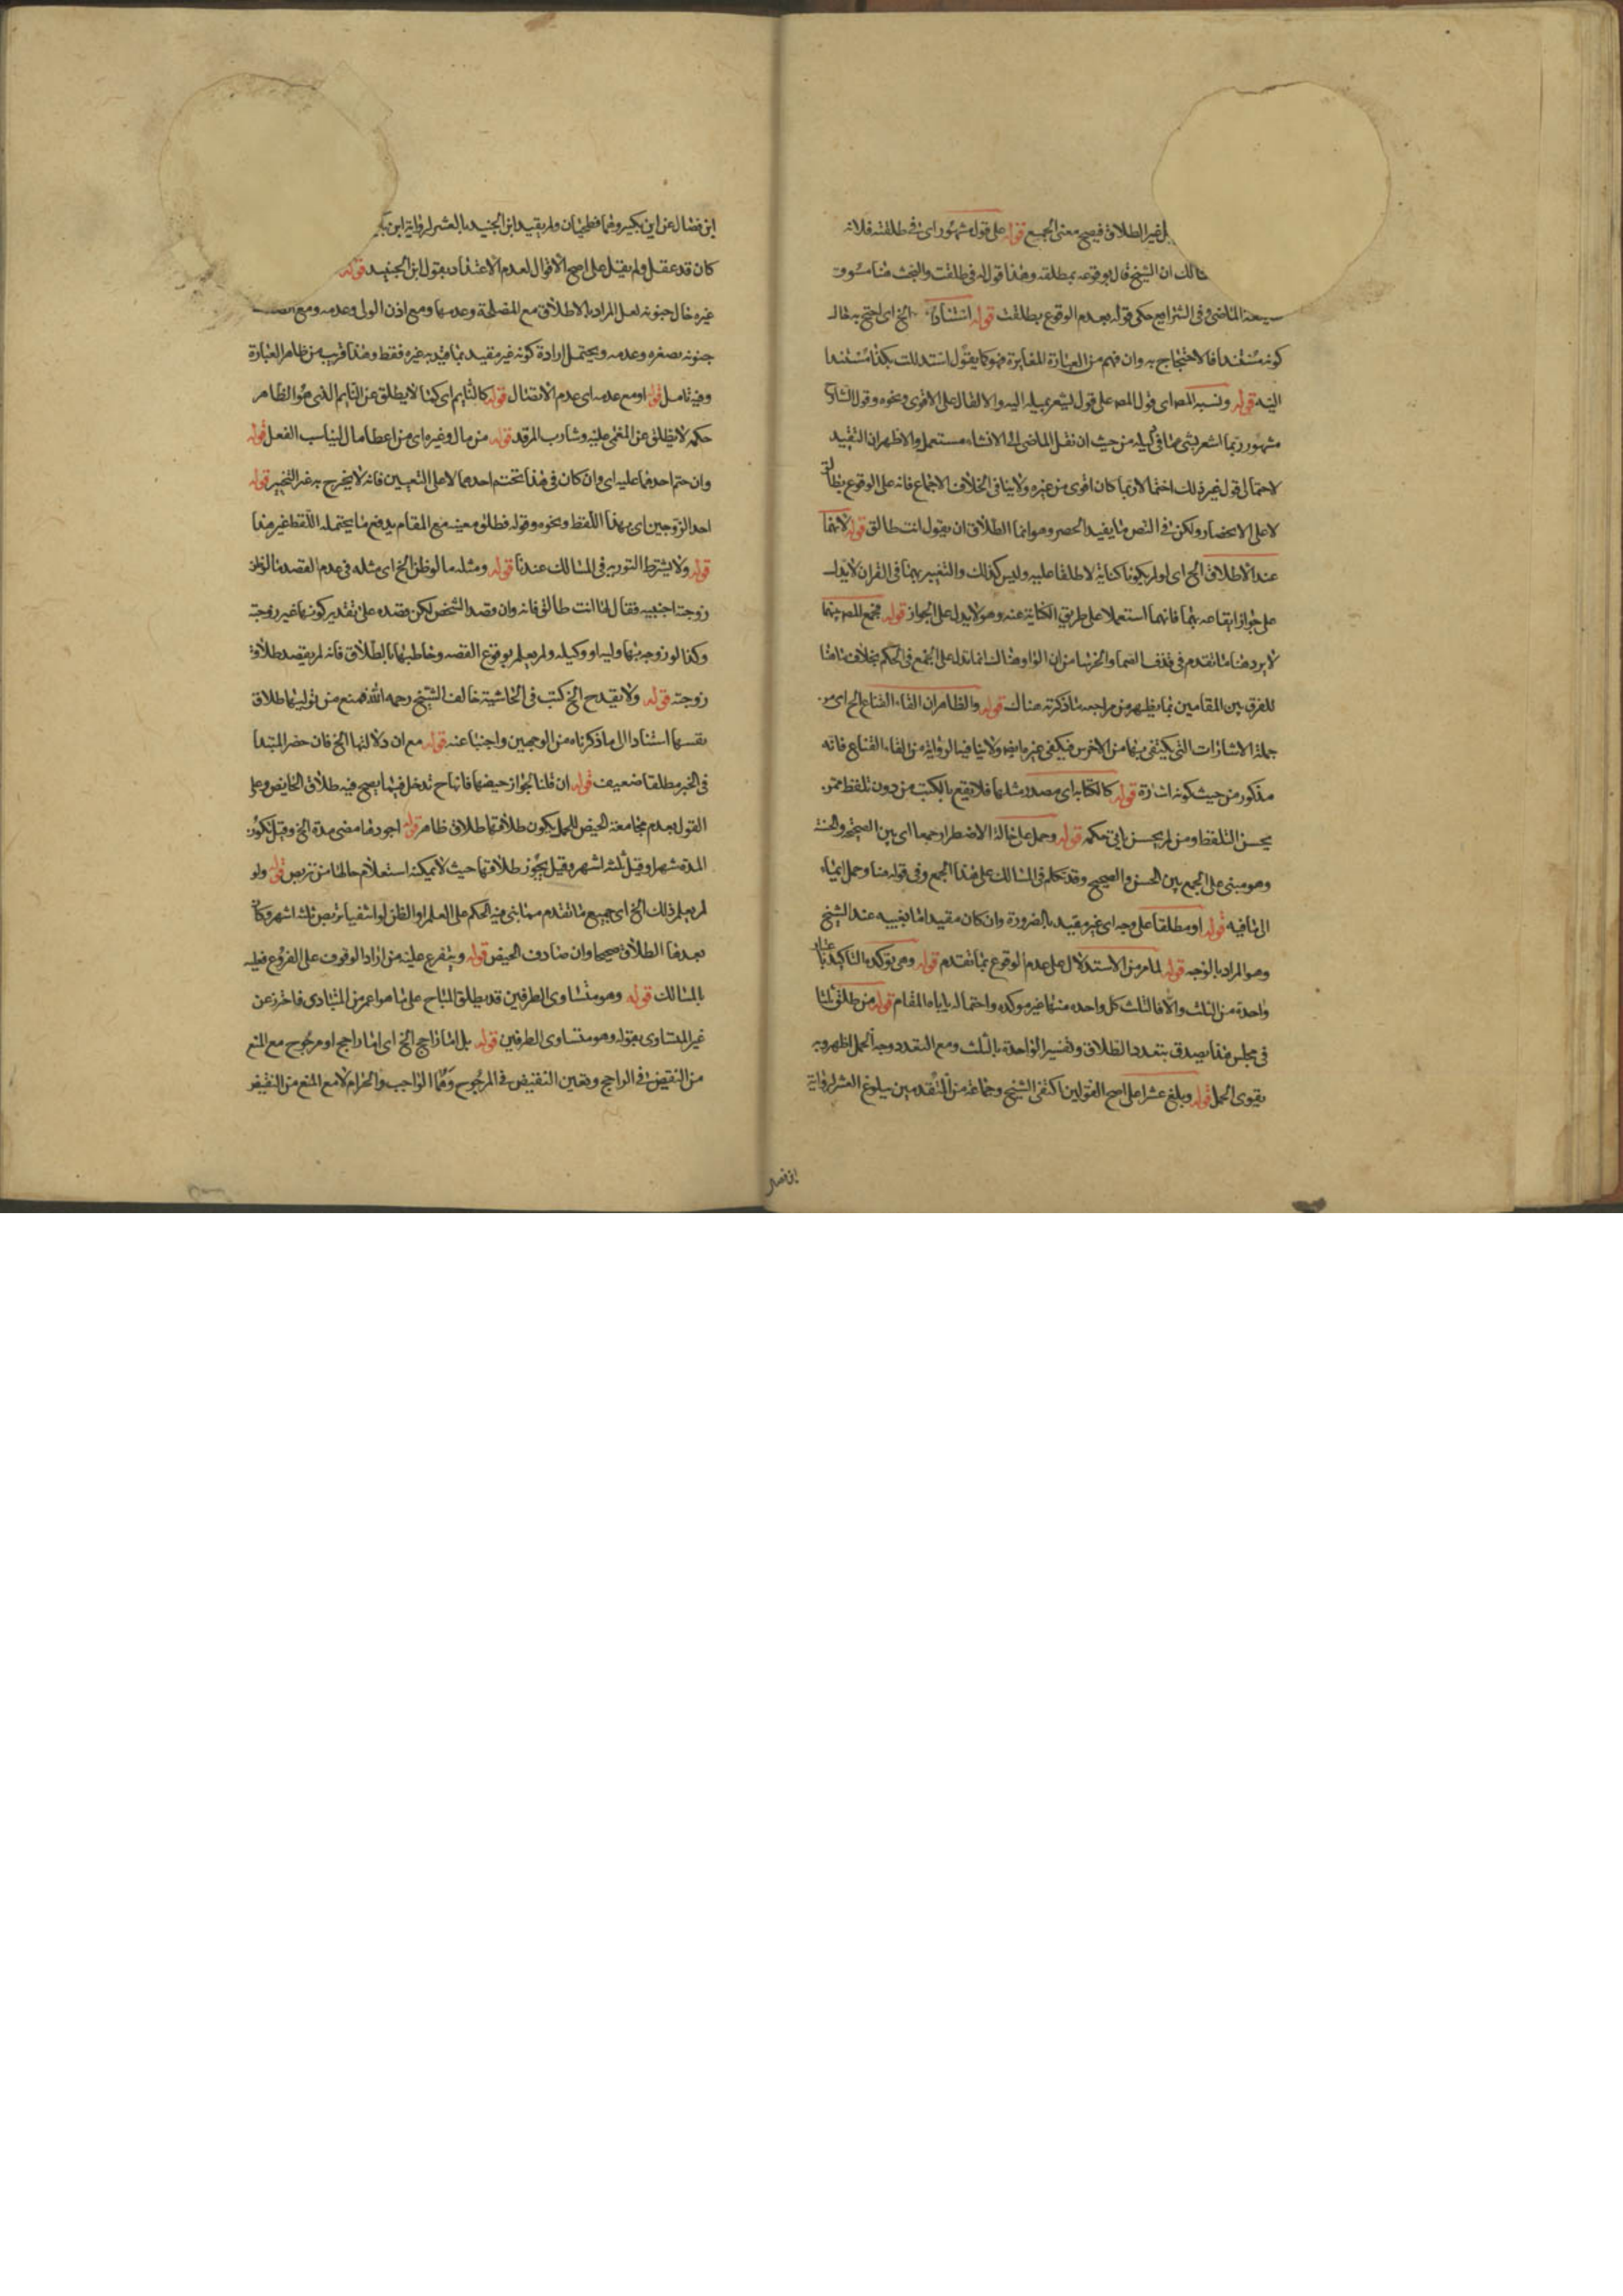 بل غير الطلاق فيصح معنى الجميع قوله على قول مشهور اى فى طلقت فلانة
هنالك ان الشيخ قال بوقوعه بمطلقه وهذا قوله فى طلقت والبحث هنا مسوق
الماضى وفى الشرايع حكى قوله بعدم الوقوع بطلقت قوله استنادا الخ اى احتج به قال
كونه مستندا فالاحتجاج به وان فهم من العبارة المغايرة فهو كما يقول استدللت بكذا مستندا
اليه قوله ونسبه المص اى قول المص على قول ليشعر بميله اليه والا لقال على الاقوى ونحوه وقول الشارح
مشهور ربما اشعر بشئ منافى لميله من حيث ان نقل الماضى الى الانشاء مستعمل والاظهر ان التقييد
لاحتمال قول غير ذلك احتمالا ربما كان اقوى من غيره ولا ينافى الخلاف الاجماع فانه على الوقوع بطالق
لا على الانحصار ولكن فى النص ما يفيد الحصر وهو انما الطلاق ان يقول انت طالق قوله لانهما
عند الاطلاق الخ اى لو لم يكونا كناية لاطلقا عليه وليس كذلك والتعبير بهما فى القران لا يدل
على جواز ايقاعه بهما فانهما استعملا على طريق الكناية عنه وهو لا يدل على الجواز قوله فجمع المص بينهما
لا يرد هنا ما تقدم فى قذف الصماء والخرساء من ان الواو هنالك انما تدل على الجمع فى الحكم بخلاف ما هنا
للفرق بين المقامين بما يظهر من مراجعه ما ذكرته هناك قوله والظاهر ان القاء القناع الخ اى من
جملة الاشارات التى يكتفى بها من الاخرس فيكفى غيره ايضا ولا ينافيه الرواية من القاء القناع فانه
مذكور من حيث كونه اشارة قوله كالكتابه اى مصدر مثلها فلا يقع بالكتب من دون تلفظ ممن
يحسن التلفظ ومن لم يحسن ياتى حكمه قوله وحمل على حالة الاضطرار جمعا اى بين الصحيحة والحسنة
وهو مبنى على الجمع بين الحسن والصحيح وقد تكلم فى المسالك على هذا الجمع وفى قوله هنا وحمل ايماء
الى ما فيه قوله او مطلقا على وجه اى غير مقيد بالضرورة وان كان مقيدا بالغيبه عند الشيخ
وهو المراد بالوجه قوله لما مر من الاستدلال على عدم الوقوع بما تقدم قوله وهى تؤكد بالتاكيد باعتبار
واحدة من الثلث والا فالثلث كل واحده منها غير موكده واحتماله ياباه المقام قوله من طلق ثلثا
فى مجلس هذا يصدق بتعدد الطلاق وتفسير الواحدة بالثلث ومع التعدد وجه الحمل اظهر وبه
يقوى الحمل قوله وبلغ عشرا على اصح القولين اكتفى الشيخ وجماعة من المتقدمين ببلوغ العشر لرواية
ابن فضال
ابن فضال عن ابن بكير وهما فطحيان ولم يقيد ابن الجنيد بالعشر لرواية ابن بكير
كان قد عقل ولم يقل على اصح الاقوال لعدم الاعتداد بقول ابن الجنيد قوله
غيره حال جنونه لعل المراد بالاطلاق مع المصلحة وعدمها ومع اذن الولى وعدمه ومع
جنونه بصغره وعدمه ويحتمل ارادة كونه غير مقيد بما قيد به غيره فقط وهذا قريب من ظاهر العبارة
وفيه تامل قوله او مع عدمه اى عدم الاتصال قوله كالنايم اى كما لا يطلق عن النايم الذى هو الظاهر
حكمه لا يطلق عن المغمى عليه وشارب المرقد قوله من مال وغيره اى من اعطا مال ليناسب الفعل قوله
وان حتم احدهما عليه اى وان كان فى هذا تحتم احدهما لا على التعيين فانه لا يخرج به عن التخيير قوله
احد الزوجين اى بهذا اللفظ ونحوه وقوله فطلق معينه مع المقام يدفع ما يحتمله اللفظ غير هذا
قوله ولا يشترط التوريه فى المسالك عندنا قوله ومثله ما لو ظن الخ اى مثله فى عدم القصد ما لو ظن
زوجته اجنبيه فقال لها انت طالق فانه وان قصد الشخص لكن قصده على تقدير كونها غير زوجته
وكذا لو زوجه بها وليه او وكيله ولم يعلم بوقوع القصه وخاطبها بالطلاق فانه لم يقصد طلاق
زوجته قوله ولا يقدح الخ كتب فى الحاشية خالف الشيخ رحمه الله فمنع من توليتها طلاق
نفسها استنادا الى ما ذكرناه من الوجهين واجبنا عنه قوله مع ان دلالتها الخ فان حصر المبتدا
فى الخبر مطلقا ضعيف قوله ان قلنا بجواز حيضها فانها ح تدخل فيما يصح فيه طلاق الحايض وعلى
القول بعدم مجامعة الحيض للحمل يكون طلاقها طلاق طاهر قوله اجودها مضى مدة الخ وقيل تكون
المدة شهرا وقيل ثلثه اشهر وقيل يجوز طلاقها حيث لا يمكنه استعلام حالها من تربص قوله ولو
لم يعلم ذلك الخ اى جميع ما تقدم مما بنى فيه الحكم على العلم او الظن لو انتفيا تربص ثلثه اشهر وكان
بعدها الطلاق صحيحا وان صادف الحيض قوله ويتفرع عليه من اراد الوقوف على الفروع فعليه
بالمسالك قوله وهو متساوى الطرفين قد يطلق المباح على ما هو اعم من المتساوى فاحترز عن
غير المتساوى بقوله وهو متساوى الطرفين قوله بل اما راجح الخ اى اما راجح او مرجوح مع المنع
من النقيض فى الراجح وتعين النقيض فى المرجوح وهما الواجب والحرام لا مع المنع من النقيض